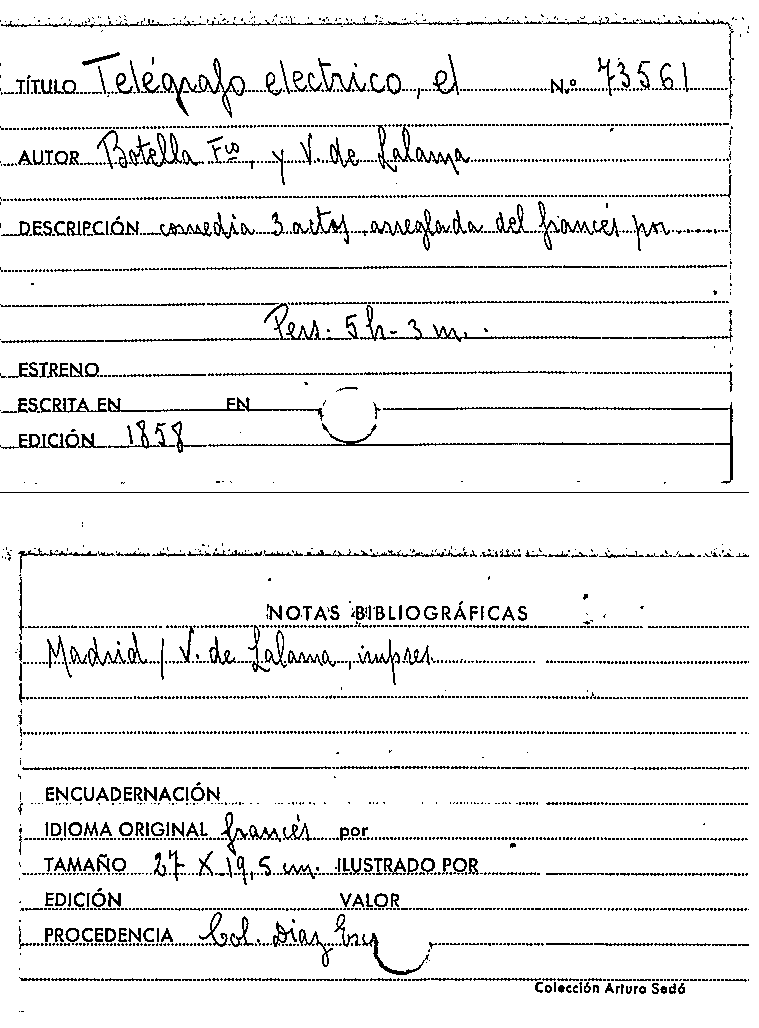 TÍTULO Telégrafo electrico, el N.º 73561
AUTOR Botella Fco, y V. de Lalama
DESCRIPCIÓN comedia 3 actos arreglada del francés por
Pers. 5 h- 3 m.
ESTRENO
ESCRITA EN EN
EDICIÓN 1858
NOTAS BIBLIOGRÁFICAS
Madrid / V. de Lalama, impres.
ENCUADERNACIÓN
IDIOMA ORIGINAL francés por
TAMAÑO 27 X 19,5 cm. ILUSTRADO POR
EDICIÓN VALOR
PROCEDENCIA Col. Díaz
Colección Arturo Sedó